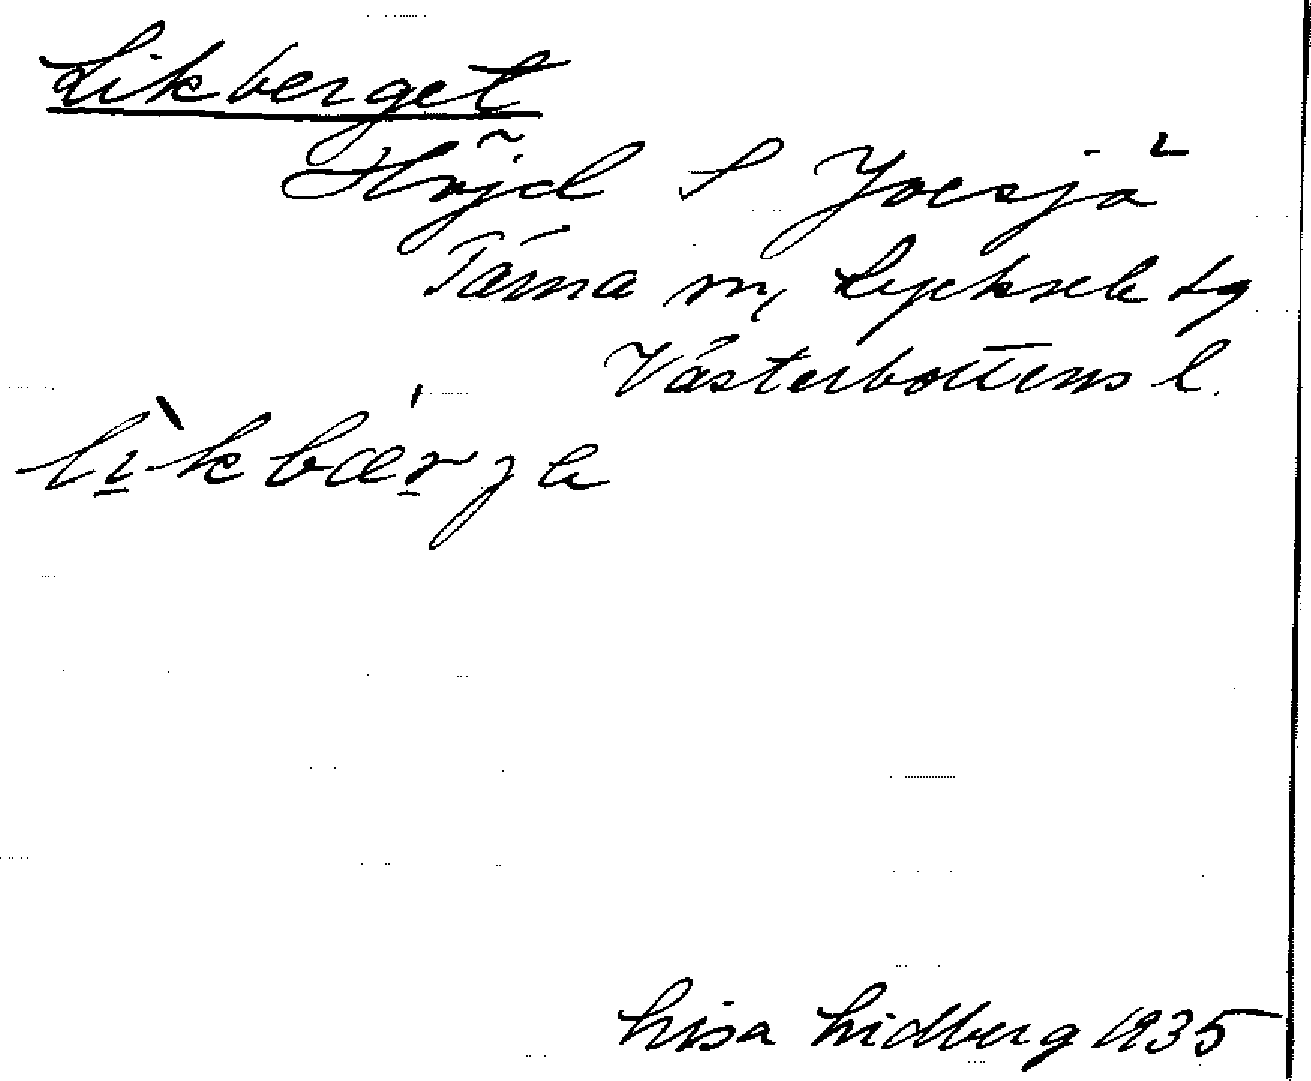 Likberget
Höjd S Joesjö
Tärna sn, Lycksele lg
Västerbottens l.
lìkbær̲je
Lisa Lidberg 1935